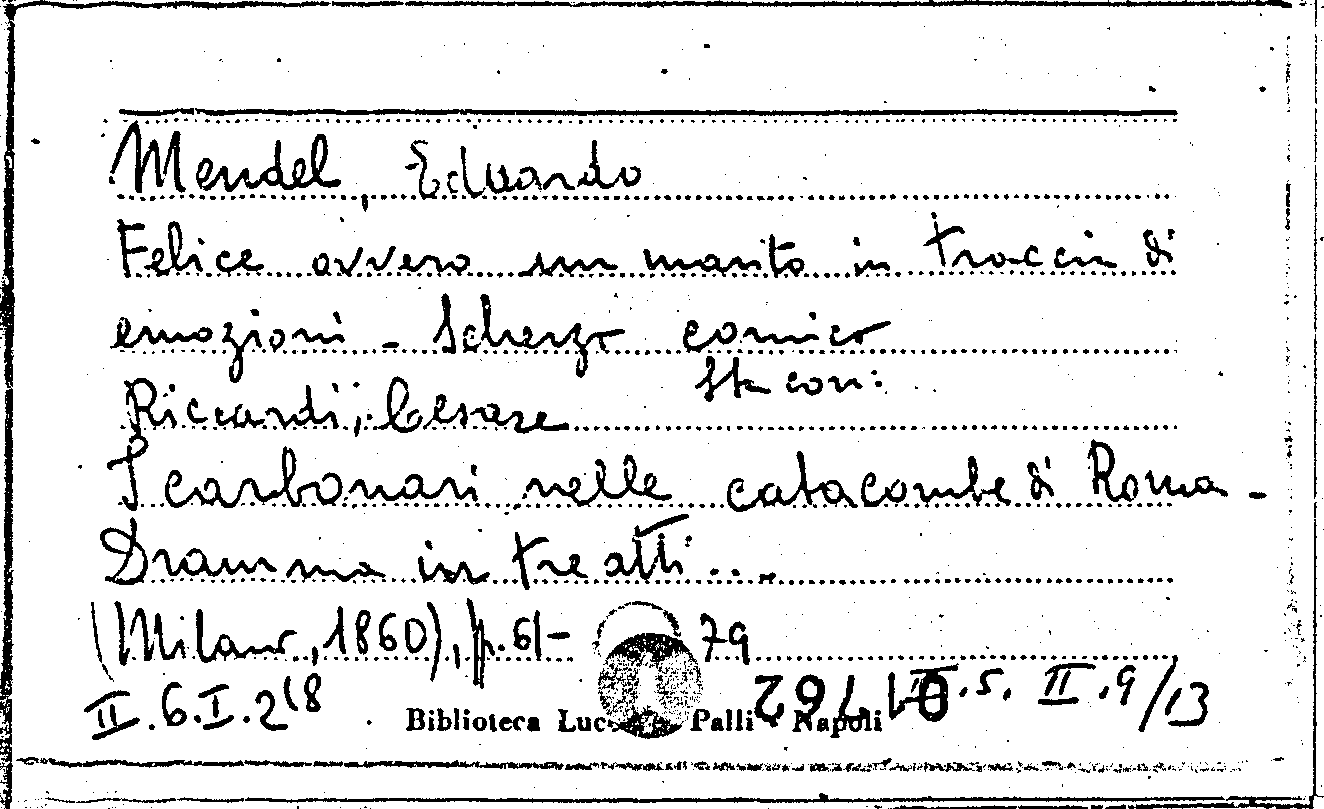 Mendel, Eduardo
Felice ovvero un marito in traccia di
emozioni - Scherzo comico
Sta con:
Riccardi, Cesare
I carbonari nelle catacombe di Roma -
Dramma in tre atti...
(Milano, 1860), p. 61- 79
II.6.I.2(8 II.5. II.9/13
Biblioteca Luc Palli - Napoli